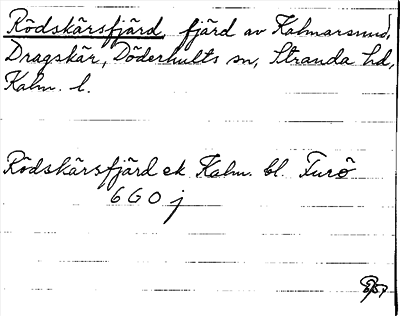 Rödskärsfjärd fjärd av Kalmarsund,
Dragskär, Döderhults sn, Stranda hd,
Kalm. l.
Rödskärsfjärd ek Kalm. bl. Furö
6 G 0 j